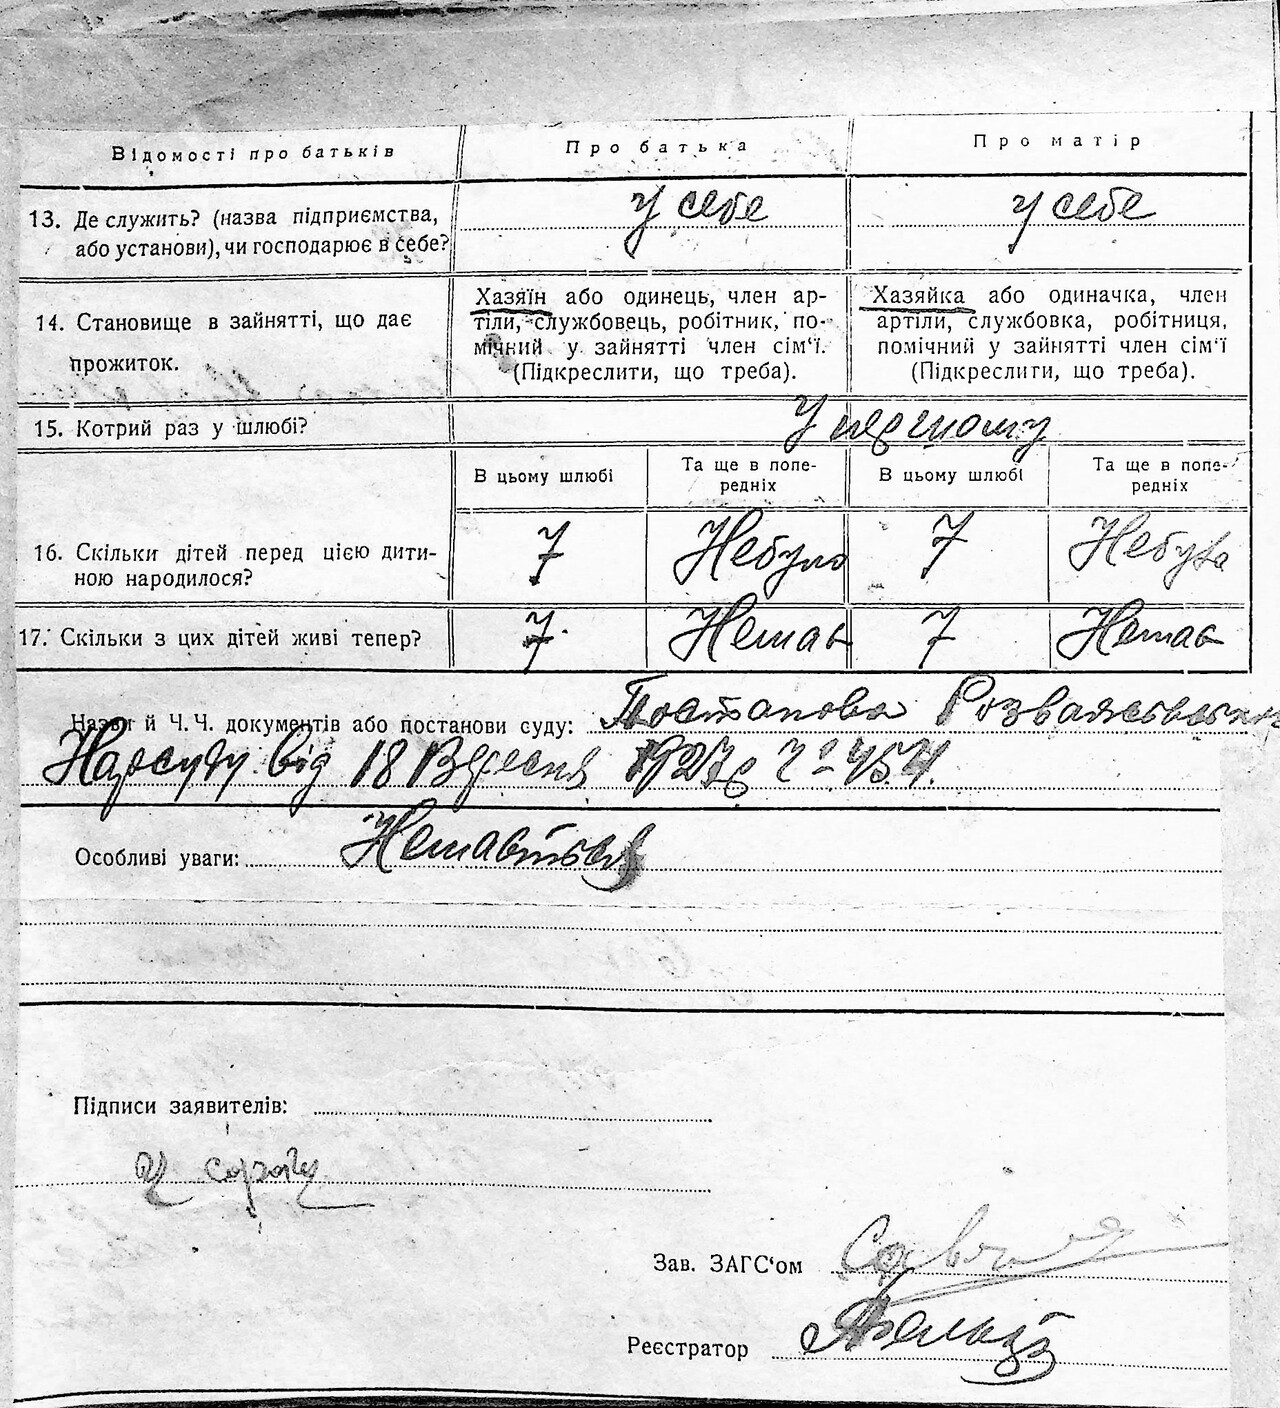 Відомості про батьків Про батька Про матір
13. Де служить? (назва підприємства, або установи), чи господарює в себе? у себе у себе
14. Становище в зайнятті, що дає прожиток.
Хазяїн або одинець, член ар-
тіли, службовець, робітник, по-
мічний у зайнятті член сім‘ї.
(Підкреслити, що треба).
Хазяйка або одиначка, член
артіли, службовка, робітниця,
помічний у зайнятті член сім‘ї
(Підкреслити, що треба).
15. Котрий раз у шлюбі? У первому
В цьому шлюбі Та ще в попе-редніх В цьому шлюбі Та ще в попе-редніх
16. Скільки дітей перед цією дити-
ною народилося? 7 Небуло 7 Небуло
17. Скільки з цих дітей живі тепер? 7 Немає 7 Немає
Назви й Ч.Ч. документів або постанови суду: Постанова
Нарсуду від 18 Вересня 1927 р Ч° 454.
Особливі уваги:
Підписи заявителів:
Зав. ЗАГС‘ом
Реєстратор